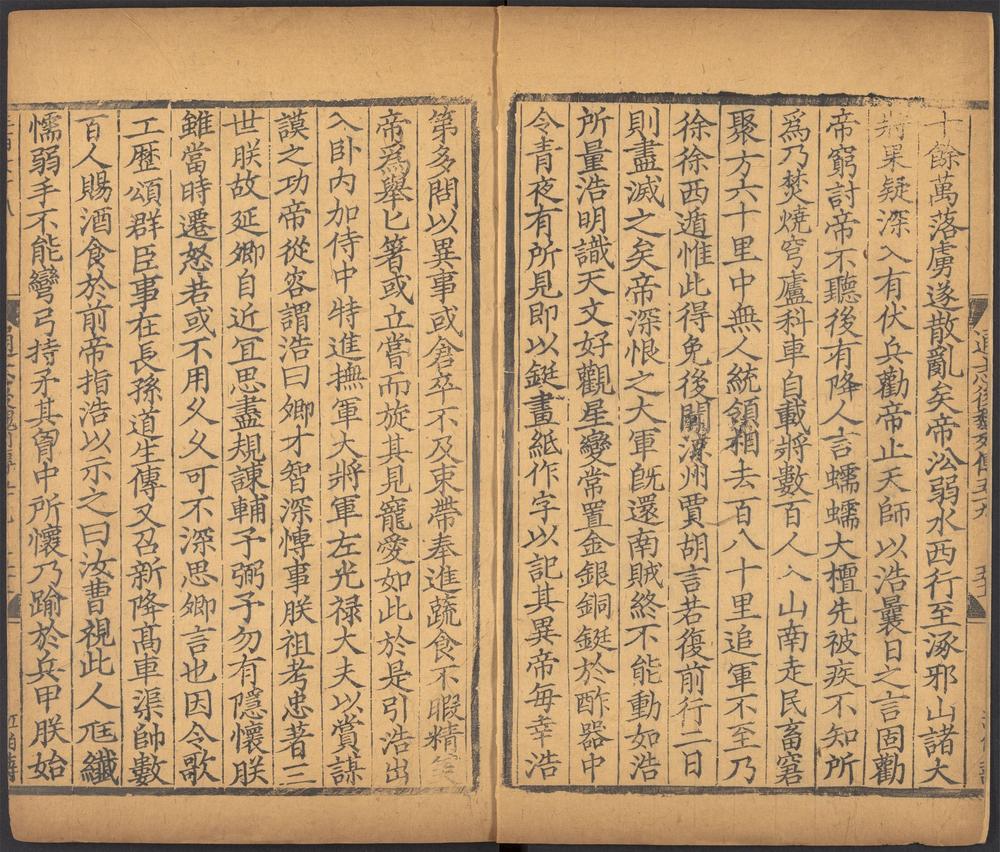 十餘萬落虜遂散亂矣帝㳂弱水西行至涿邪山諸大
將果疑深入有伏兵勸帝止天師以浩曩日之言固勸
帝窮討帝不聽後有降人言蠕蠕大檀先被疾不知所
爲乃焚燒穹廬科車自載將數百人入山南走民畜窘
聚方六十里中無人統領相去百八十里追軍不至乃
徐徐西遁惟此得免後聞涼州賈胡言若復前行二日
則盡滅之矣帝深恨之大軍旣還南賊終不能動如浩
所量浩明識天文好觀星變常置金銀銅鋌於酢器中
令青夜有所見即以鋌畫紙作字以記其異帝每幸浩
第多問以異事或倉卒不及束帶奉進蔬食不暇精
帝爲舉匕箸或立嘗而旋其見寵愛如此於是引浩出
入卧內加侍中特進撫軍大將軍左光禄大夫以賞謀
謨之功帝從容謂浩曰卿才智深愽事朕祖考忠著三
世朕故延卿自近冝思盡規諫輔予弼予勿有隱懷朕
雖當時遷怒若或不用久久可不深思卿言也因令歌
工歷頌群臣事在長孫道生傳又召新降髙車渠帥數
百人賜酒食於前帝指浩以示之曰汝曹視此人尫纖
懦弱手不能彎弓持矛其胷中所懷乃踰於兵甲朕始